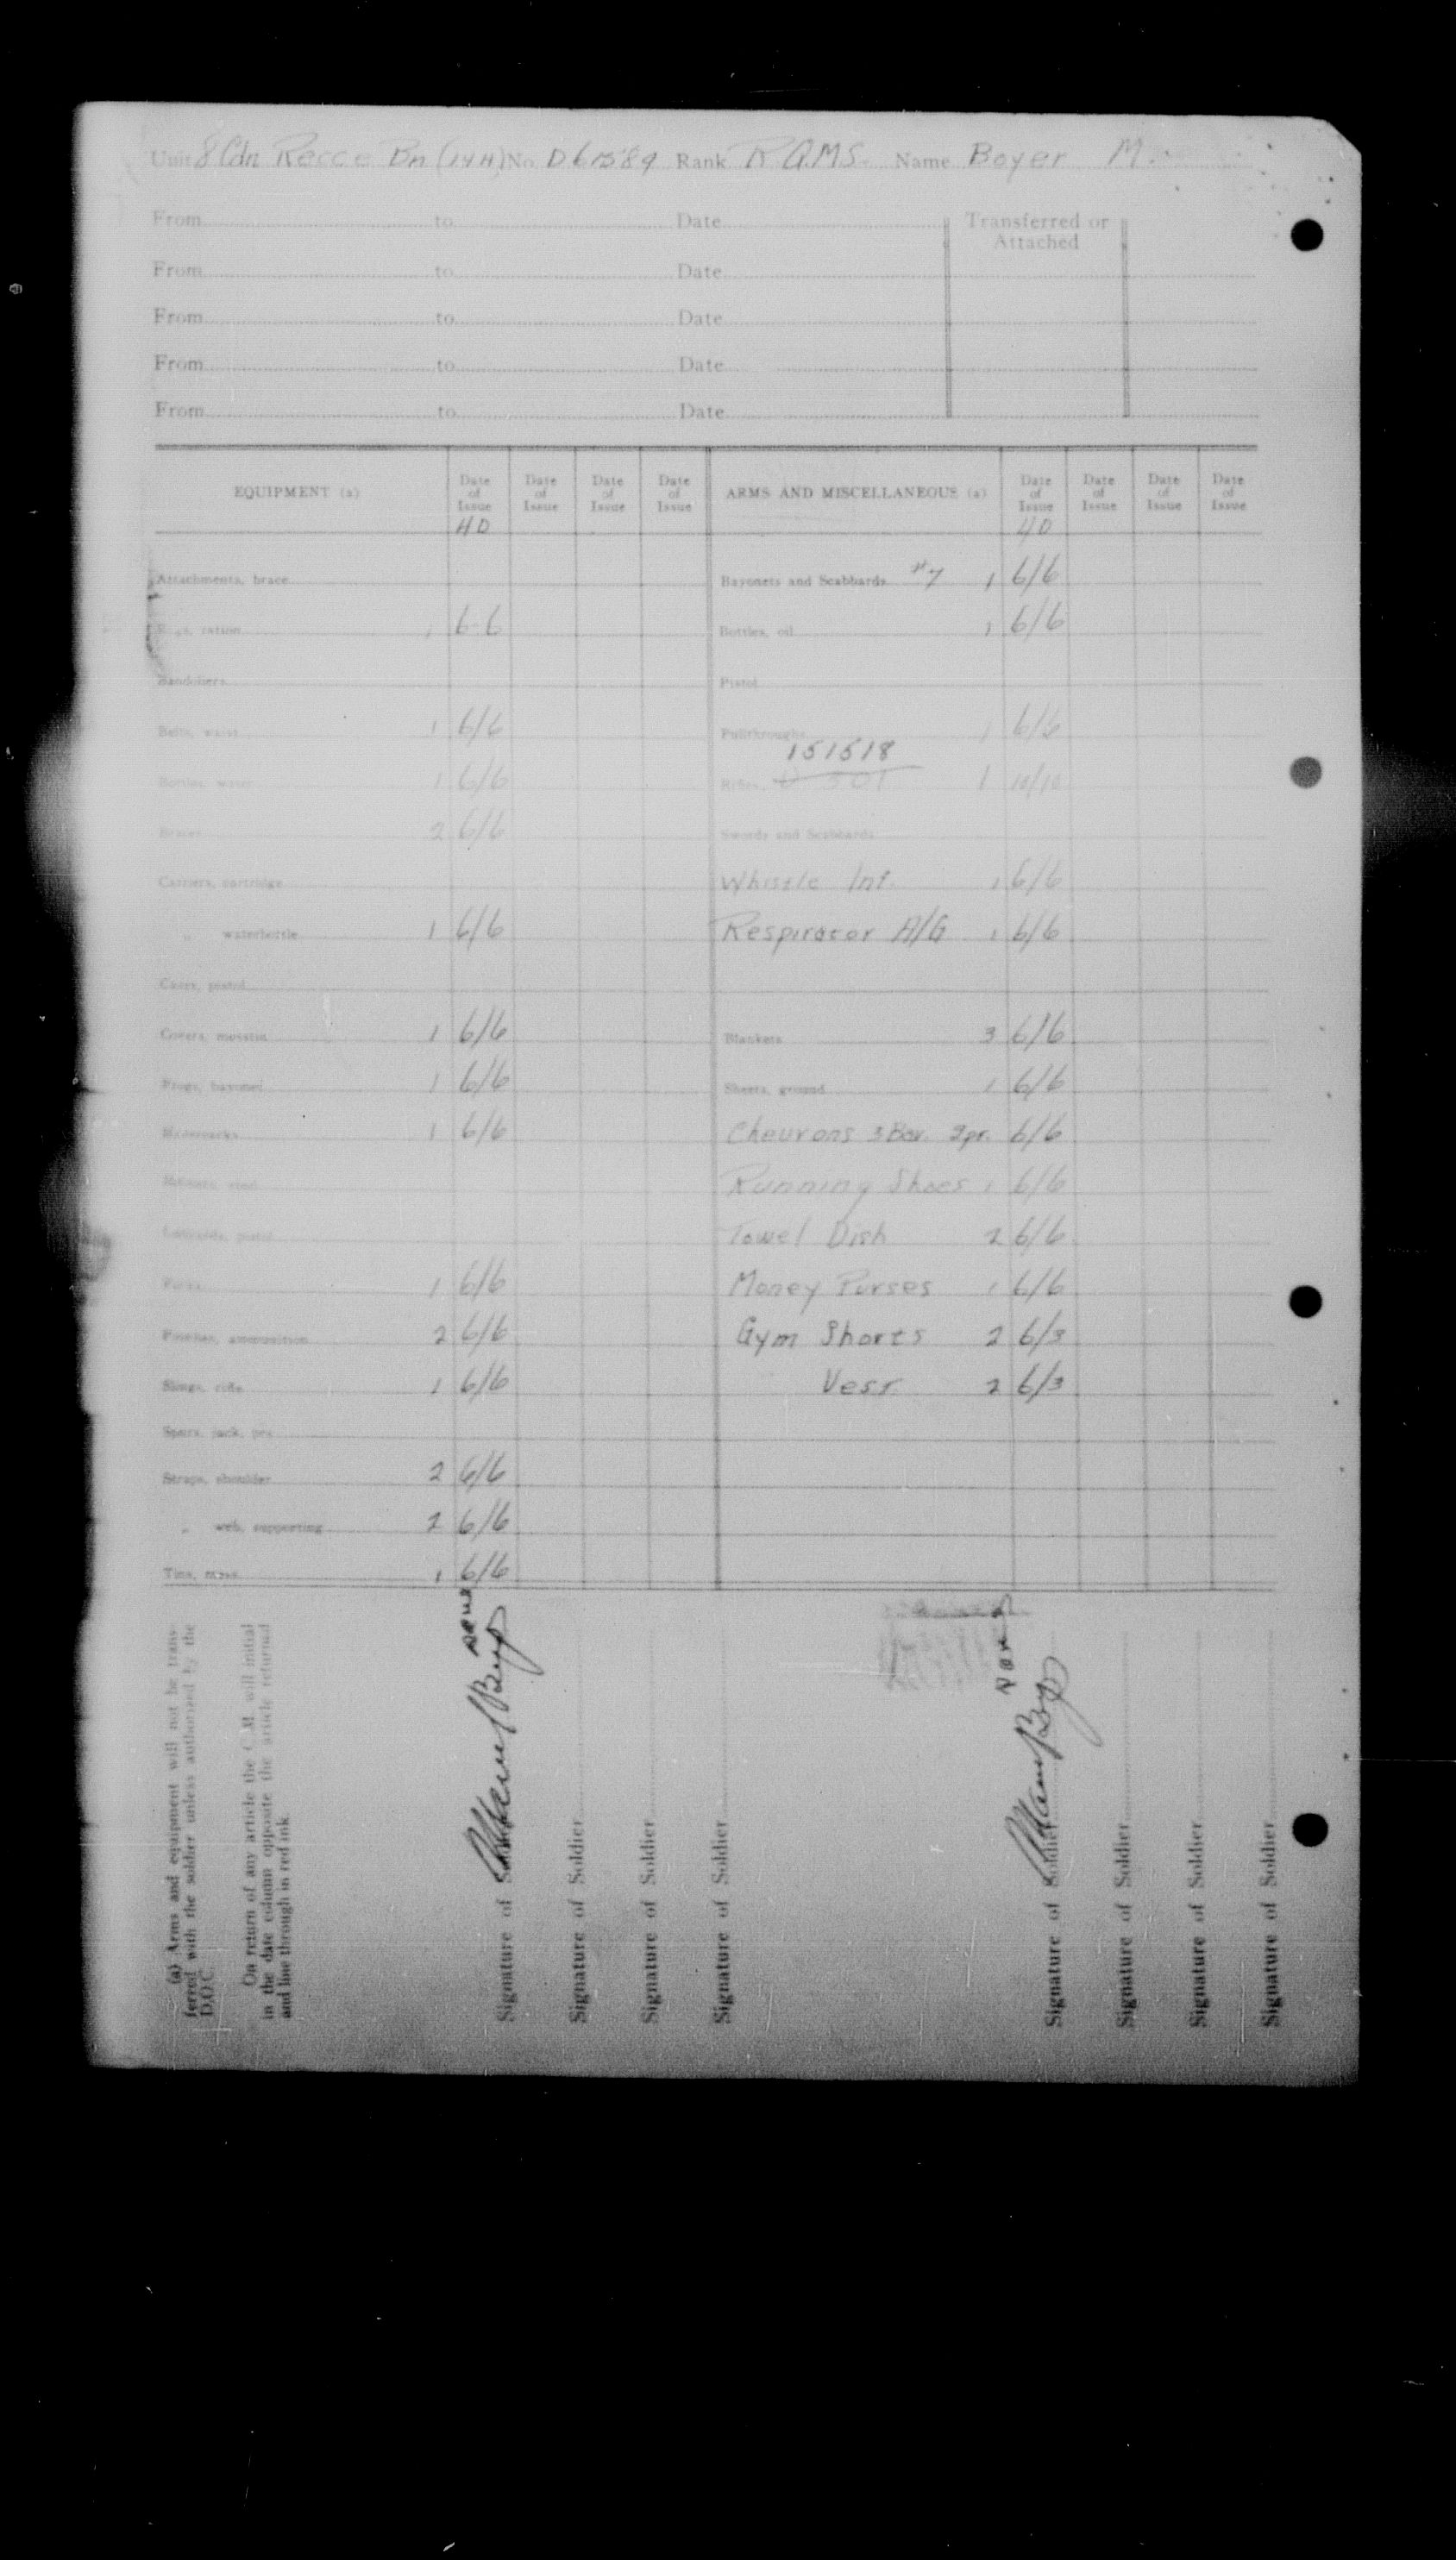 Unit 8 Cdn Recce Bn (14H) No D61589 Rank RQMS. Name Boyer M.
From to Date Transferred or Attached
From to Date
From to Date
From to Date
From to Date
EQUIPMENT (a) Date of Issue Date of Issue Date of Issue Date of Issue ARMS AND MISCELLANEOUS (a) Date of Issue Date of Issue Date of Issue Date of Issue
40 40
Attachments, brace Bayonets and Scabbards #7 1 6/6
Bags, ration 1 6-6 Bottles, oil 1 6/6
Bandoliers Pistol
Belts, waist 1 6/6 Pullthroughs 1 6/6
151518
Bottles, water 1 6/6 Rifles, 1 10/10
Braces 2 6/6 Swords and Scabbards
Carriers, cartridge Whistle Inf. 1 6/6
„ waterbottle 1 6/6 Respirator A/G 1 6/6
Cases, pistol
Covers, messtin 1 6/6 Blankets 3 6/6
Frogs, bayonet 1 6/6 Sheets, ground 1 6/6
Haversacks 1 6/6 Chevrons 3 Bar. 2pr. 6/6
Running Shoes 1 6/6
Lanyards, pistol Towel Dish 2 6/6
Packs 1 6/6 Money Purses 1 6/6
Pouches, ammunition 2 6/6 Gym Shorts 2 6/3
Slings, rifle 1 6/6 Vest 2 6/3
Spurs, jack, prs.
Straps, shoulder 2 6/6
„ web, supporting 2 6/6
Tins, mess 1 6/6
(a) Arms and equipment will not be trans-
ferred with the soldier unless authorized by the
D.O.C.
On return of any article the Q.M. will initial
in the date column opposite the article returned
and line through in red ink.
Signature of Soldier
Signature of Soldier
Signature of Soldier
Signature of Soldier
Signature of Soldier
Signature of Soldier
Signature of Soldier
Signature of Soldier